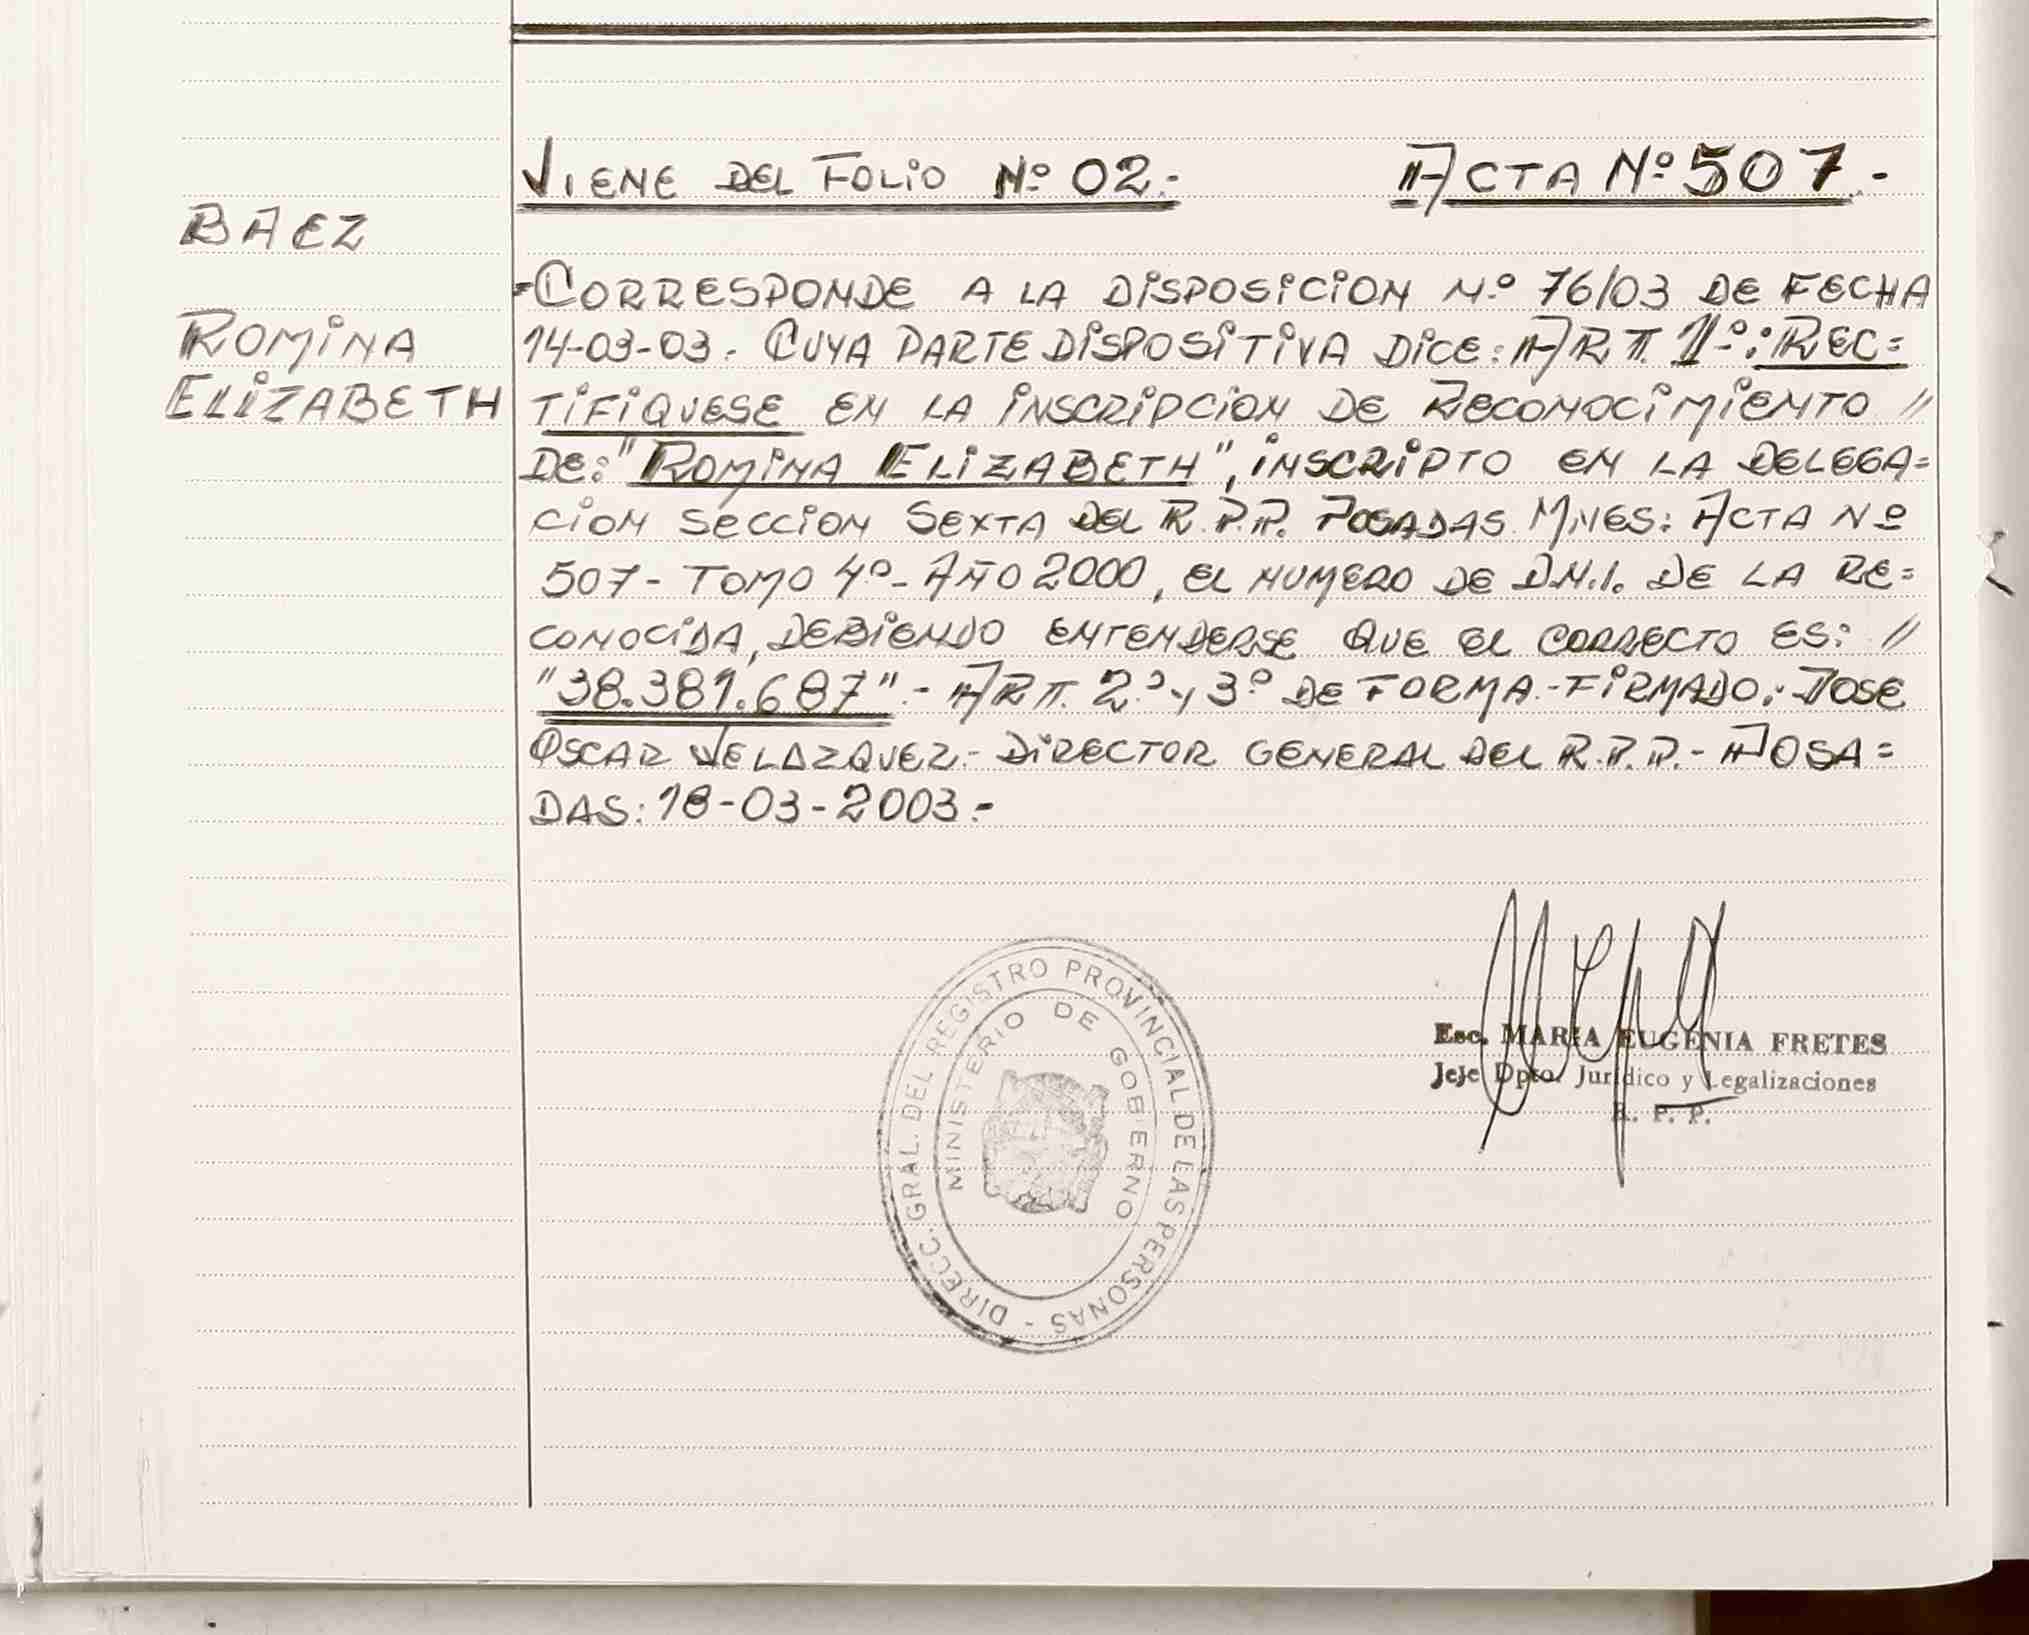 VIENE DEL FOLIO Nº 02.- ACTA Nº 507.-
BAEZ
ROMINA
ELIZABETH
-CORRESPONDE A LA DISPOSICION N.º 76/03 DE FECHA
14-03-03. CUYA PARTE DISPOSITIVA DICE: ART. 1º: REC=
TIFIQUESE EN LA INSCRIPCION DE RECONOCIMIENTO //
DE: "ROMINA ELIZABETH", INSCRIPTO EN LA DELEGA=
CION SECCION SEXTA DEL R.P.P. POSADAS MNES: ACTA Nº
507- TOMO 4º- AÑO 2000, EL NUMERO DE D.N.I. DE LA RE=
CONOCIDA, DEBIENDO ENTENDERSE QUE EL CORRECTO ES: //
"38.381.687".- ART. 2º y 3º DE FORMA.-FIRMADO: JOSE
OSCAR VELAZQUEZ.- DIRECTOR GENERAL DEL R.P.P.- POSA=
DAS: 18-03-2003.-
DIRECC. GRAL. DEL REGISTRO PROVINCIAL DE LAS PERSONAS -
MINISTERIO DE GOBIERNO
Esc. MARIA EUGENIA FRETES
Jeje Dpto. Jurídico y Legalizaciones
R. P. P.